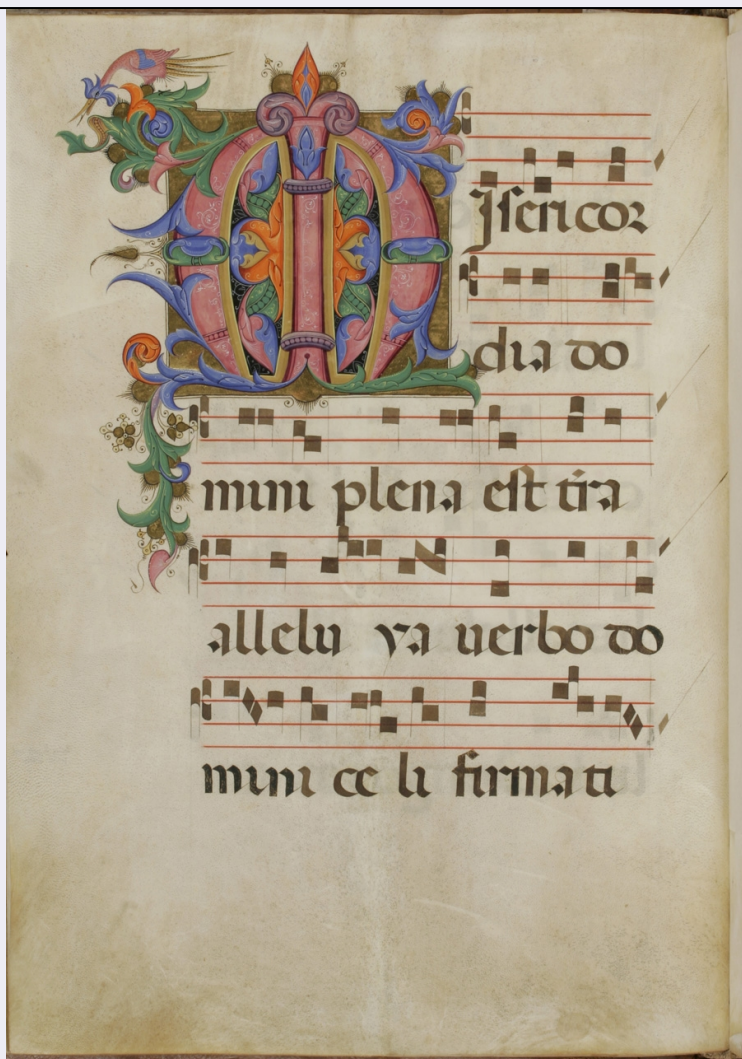 MJsericor
dia do
mini plena est tr̄a
allelu ya uerbo do
mini ce li firmati